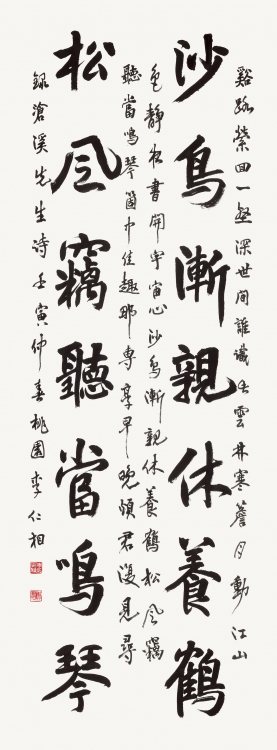 沙鳥漸親休養鶴
松風竊聽當鳴琴
谿路縈回一壑深世間誰識出雲
井寒簷月動江山
色靜右書開宇宙心沙鳥漸親休養鶴松風竊
聽當鳴琴箇中佳趣那專享早晚煩君漫見尋
錄滄溪先生詩壬寅仲春桃園李仁相